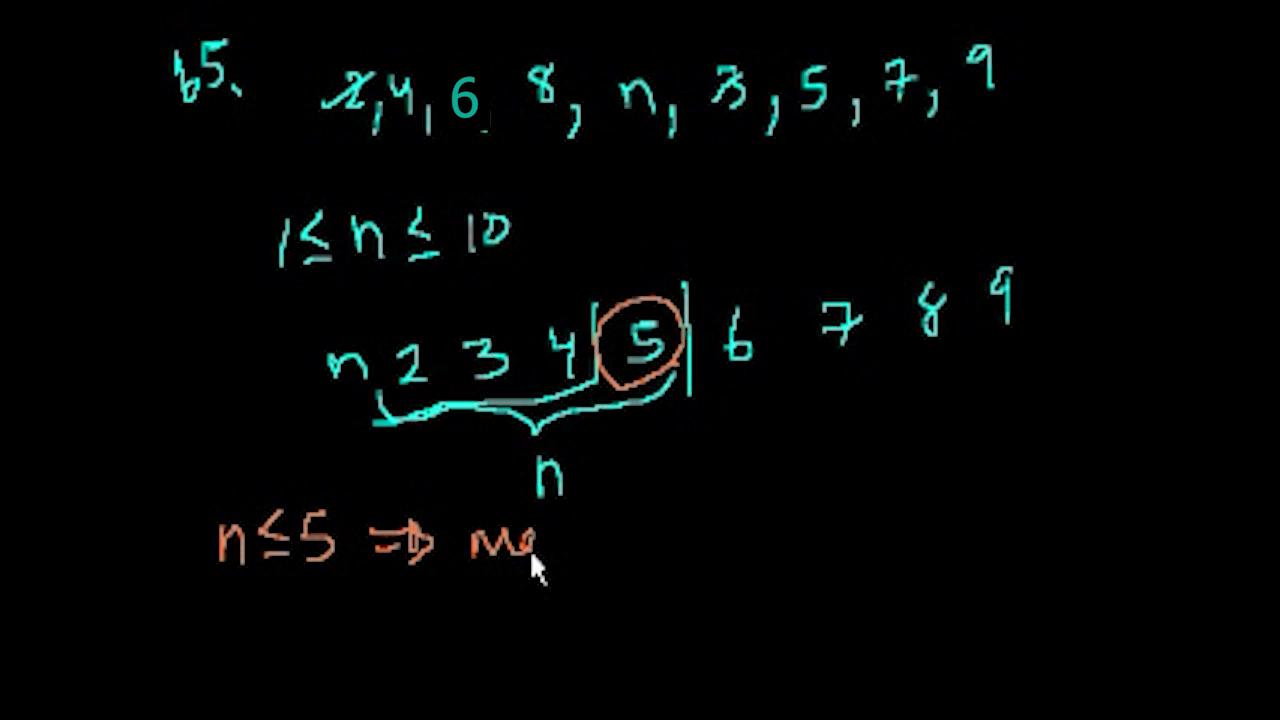 65. 2, 4, 6, 8, n, 3, 5, 7, 9
1 ≤ n ≤ 10
n 2 3 4 5 6 7 8 9
n
n ≤ 5 ⇒ me